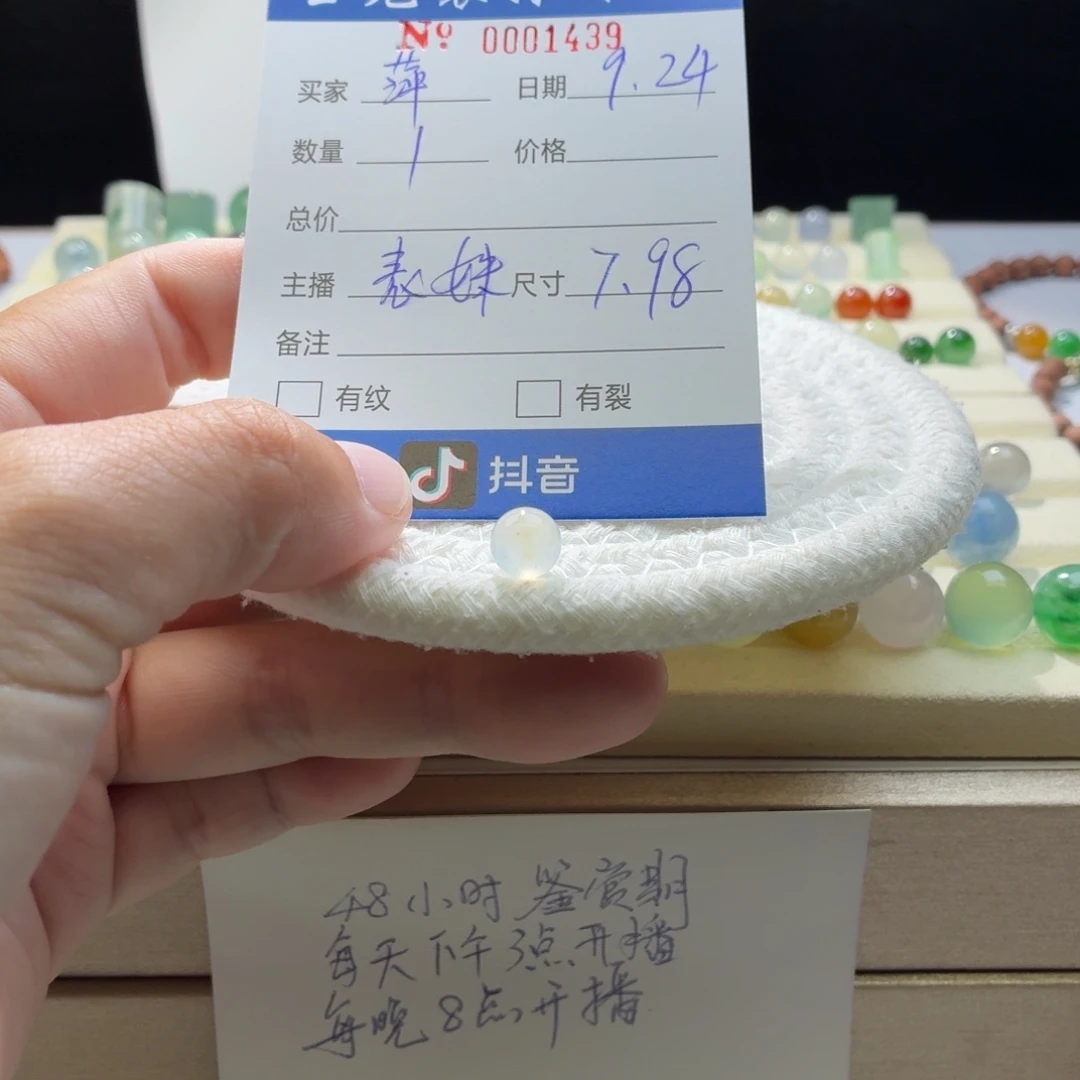 Nº 0001439
买家 萍 日期 9.24
数量 1 价格
总价
主播 表妹 尺寸 7.98
备注
有纹 有裂
抖音
48小时鉴赏期
每天下午3点开播
每晚8点开播